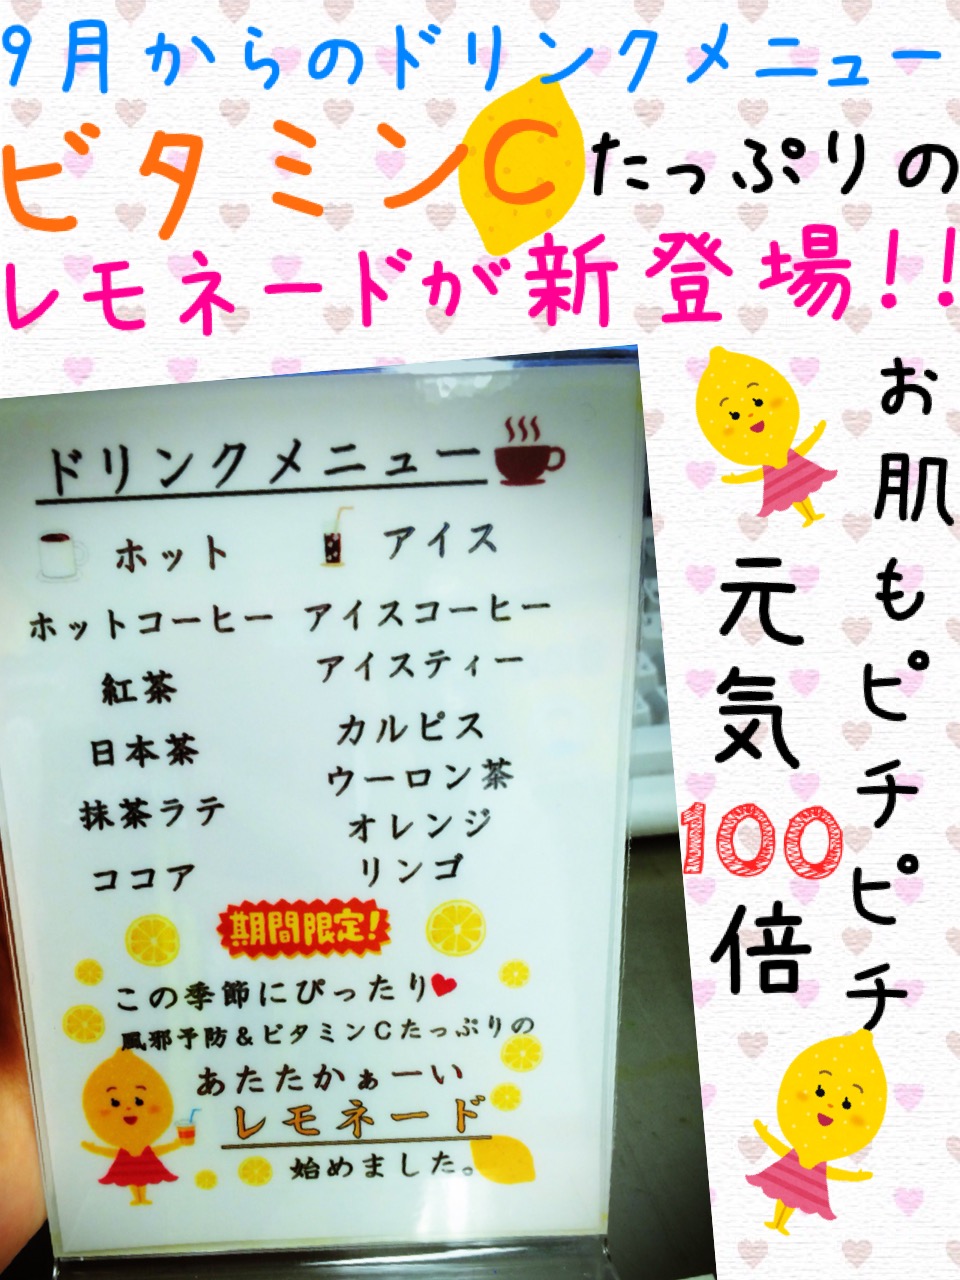 9月からのドリンクメニュー
ビタミンCたっぷりの
レモネードが新登場!!
お肌もピチピチ
元気100倍
ドリンクメニュー
ホット
ホットコーヒー
紅茶
日本茶
抹茶ラテ
ココア
アイス
アイスコーヒー
アイスティー
カルピス
ウーロン茶
オレンジ
リンゴ
期間限定!
この季節にぴったり
風邪予防&ビタミンCたっぷりの
あたたかぁーい
レモネード
始めました。